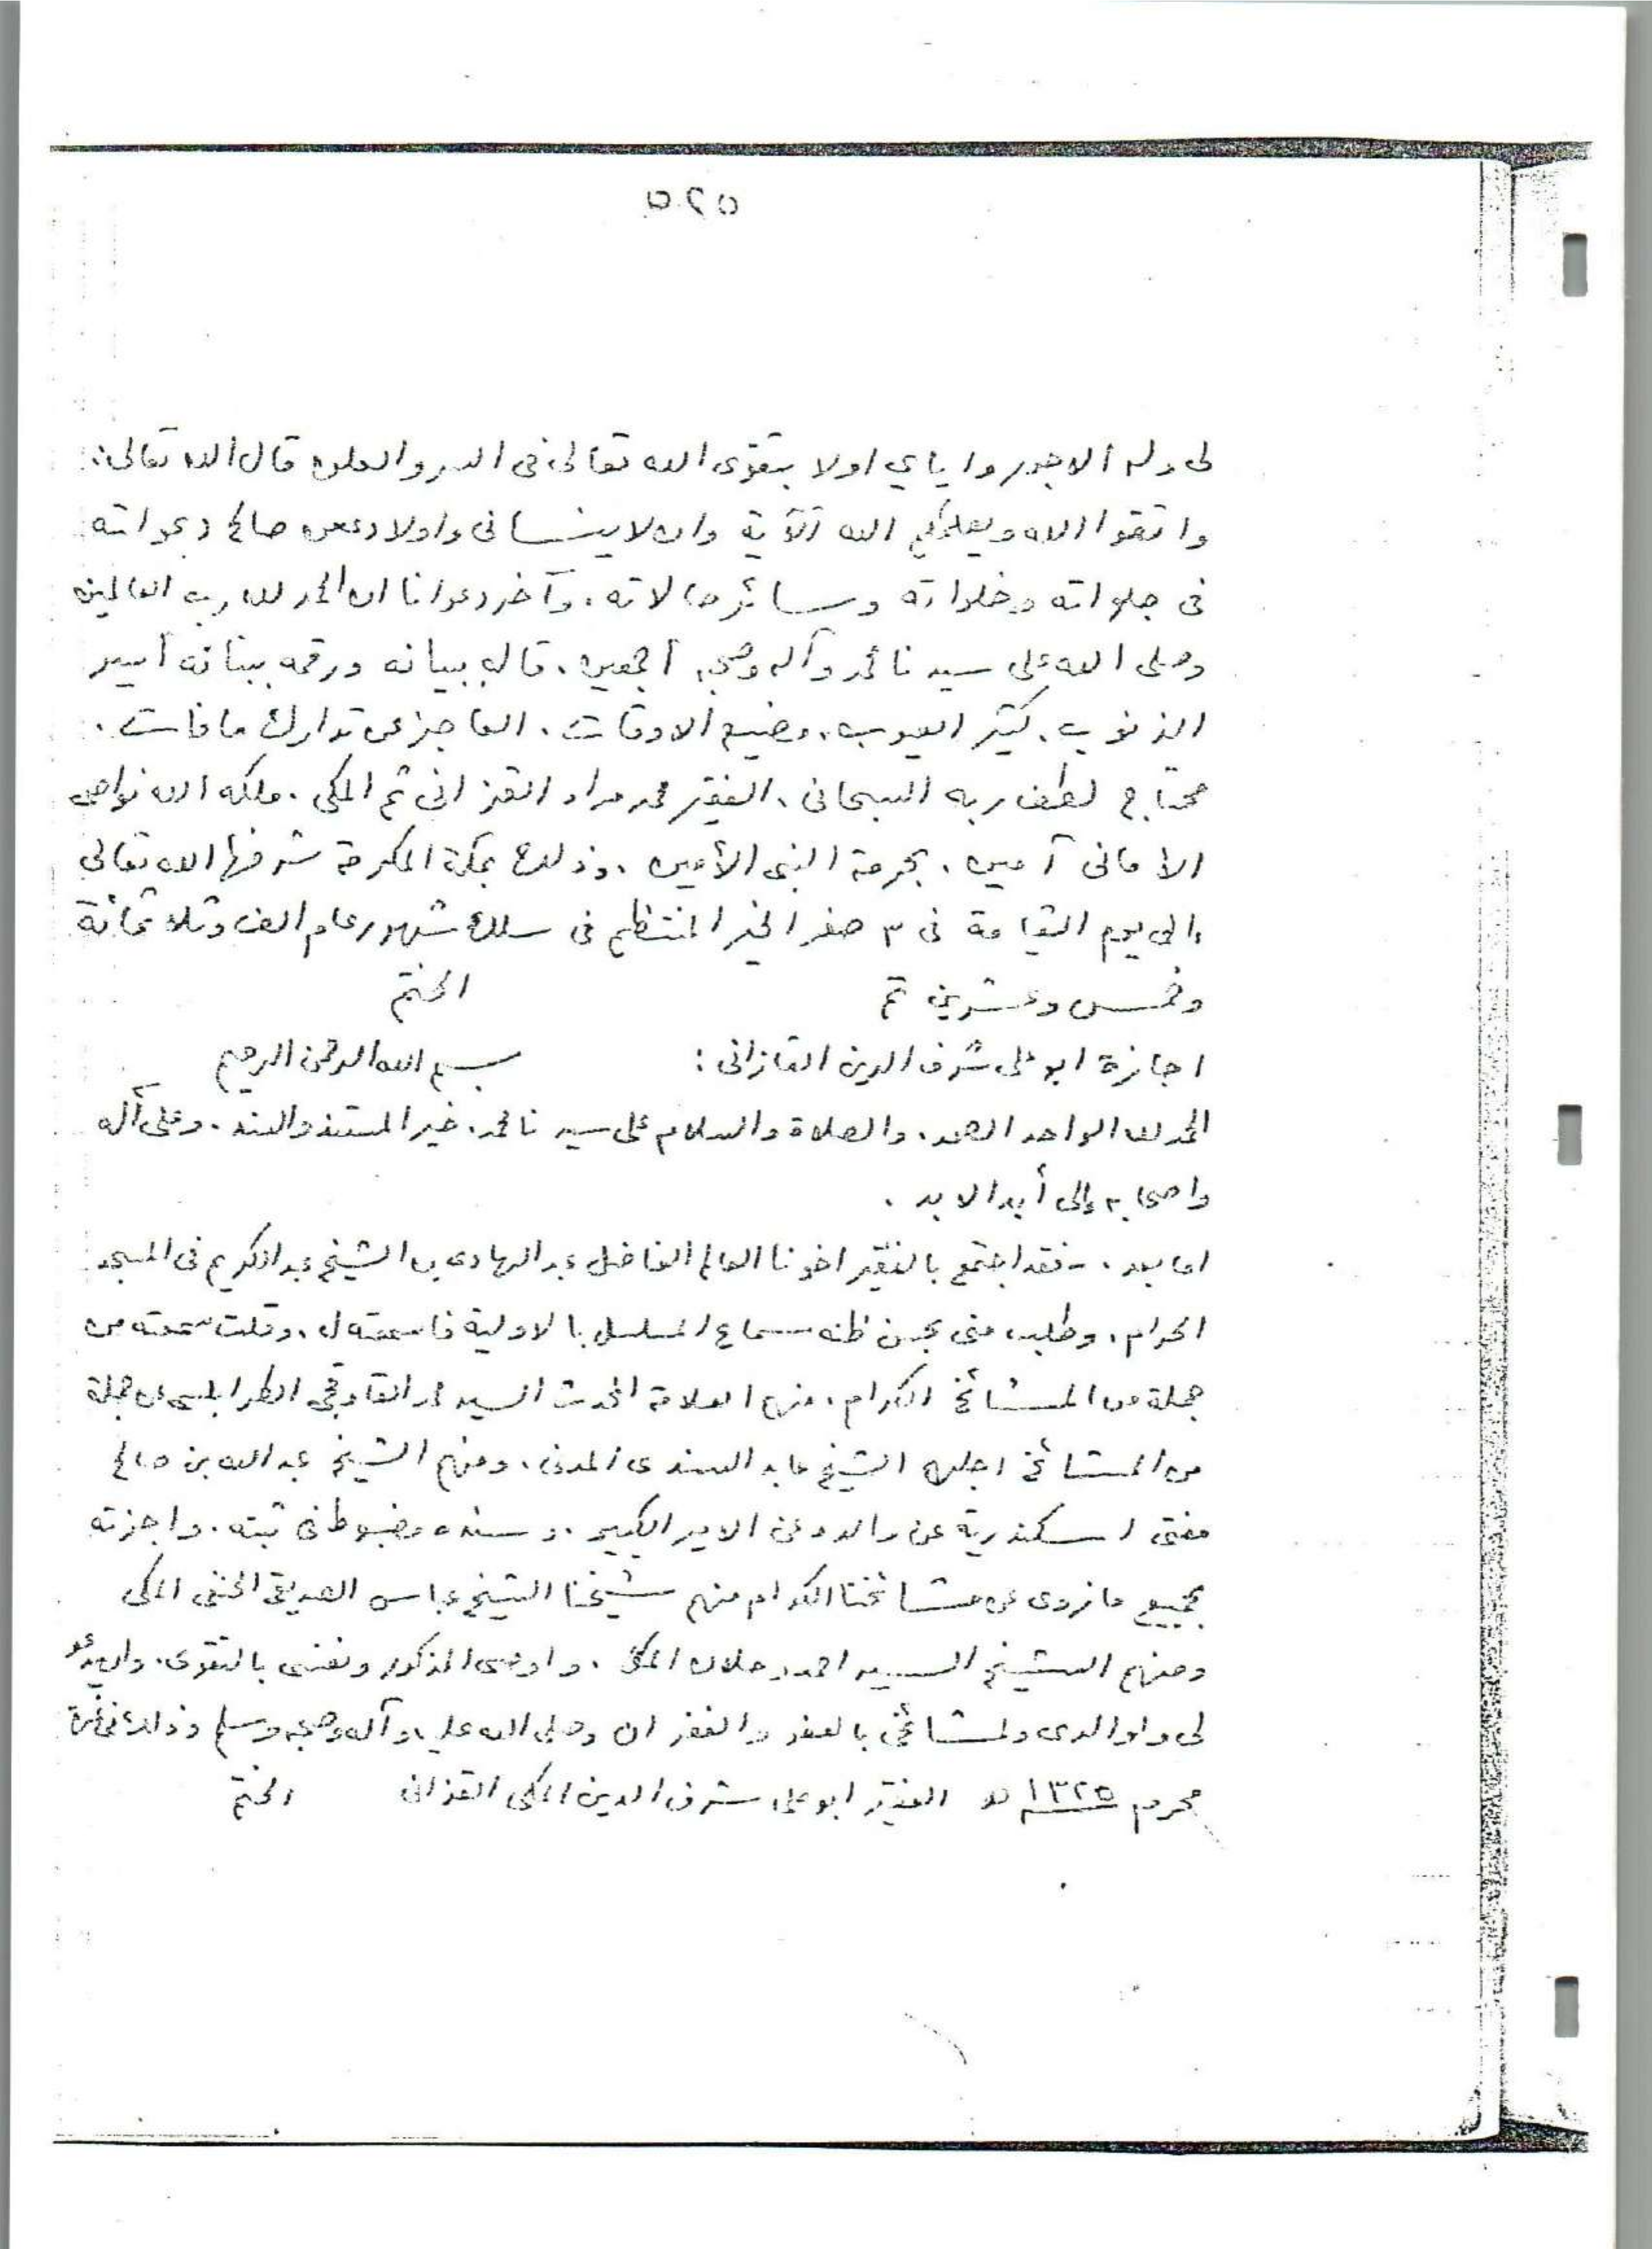 ٥٢٥
لى وله الاجور واياي اولا بتقوى الله تعالى فى السر والعلن قال الله تعالى:
واتقوا الله ويعلمكم الله الآية وان لا ينسانى واولادى من صالح دعواته
فى جلواته وخلواته وسائر حالاته. وآخر دعوانا ان الحمد لله رب العالمين
وصلى الله على سيدنا محمد وآله وصحبه أجمعين. قاله ببيانه ورقمه ببنانه أسير
الذنوب. كثير العيوب. مضيع الاوقات. العاجز عن تدارك ما فات.
محتاج لطف ربه السبحانى. الفقير محمد مراد القزانى ثم المكى. ملكه الله نواصى
الامانى آمين. بحرمة النبى الأمين. وذلك بمكة المكرمة شرفها الله تعالى
إلى يوم القيامة فى ٣ صفر الخير المنتظم فى سلك شهور عام الف وثلاثمائة
وخمس وعشرين تم الختم
اجازة ابو على شرف الدين القازانى: بسم الله الرحمن الرحيم
الحمد لله الواحد الصمد. والصلاة والسلام على سيدنا محمد. خير المستند والسند. وعلى آله
واصحابه إلى أبد الابد.
اما بعد. فقد اجتمع بالفقير اخونا العالم الفاضل عبد الهادى بن الشيخ عبد الكريم فى المسجد
الحرام. وطلب منى بحسن ظنه سماع المسلسل بالاولية فاسمعته ل. وقلت سمعته من
جملة من المشائخ الكرام. منهم العلامة المحدث السيد محمد القاوقجى الطرابلسى عن جملة
من المشائخ اجلهم الشيخ عابد السندى المدنى. ومنهم الشيخ عبد الله بن صالح
مفتى اسكندرية عن والده عن الامير الكبير. وسنده مضبوط فى ثبته. واجزته
بجميع ما نروى عن مشائخنا الكرام منهم شيخنا الشيخ عباس الصديقى الحنفى المكى
ومنهم الشيخ السيد احمد دحلان المكى. واوصى المذكور ونفسى بالتقوى. وان يدعو
لى ولوالدى ولمشائخى بالعفو والغفران وصلى الله عليه وآله وصحبه وسلم وذلك فى
محرم ١٣٢٥ ه الفقير ابو على شرف الدين المكى القزانى الختم